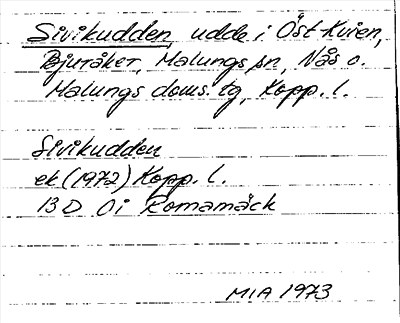 Sivikudden udde i Öst-Kvien,
Bjuråker, Malungs sn, Nås o.
Malungs doms. tg, Kopp. l.
Sivikudden
ek (1972) Kopp. l.
13 D 0i Romamäck
MIA 1973